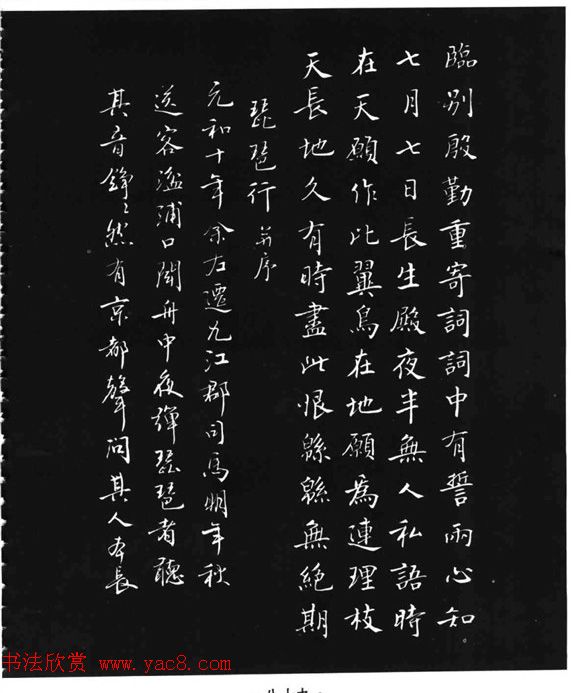 臨別殷勤重寄詞詞中有誓兩心知
七月七日長生殿夜半無人私語時
在天願作比翼鳥在地願為連理枝
天長地久有時盡此恨緜緜無絕期
琵琶行并序
元和十年余左遷九江郡司馬明年秋
送客湓浦口聞舟中夜彈琵琶者聽
其音錚錚然有京都聲問其人本長
书法欣赏 www.yac8.com